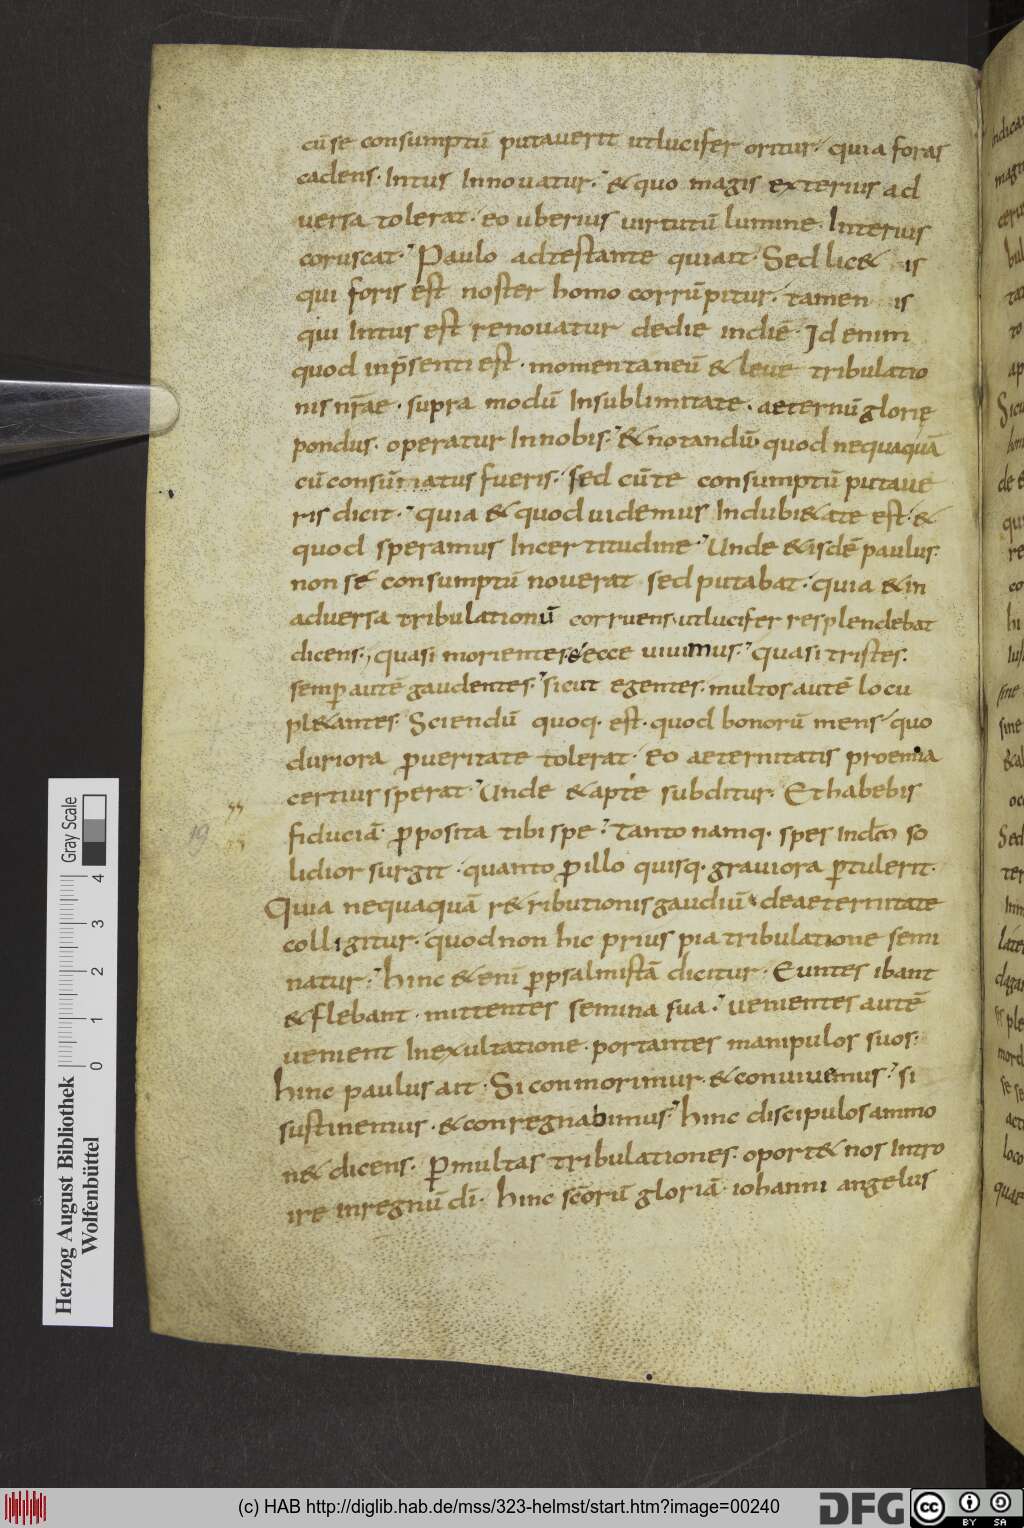 cū se consumptū putaverit ut lucifer oritur. quia foras
cadens. Intus Innovatur. & quo magis exterius ad
versa tolerat. eo uberius virtutū lumine Interius
coruscat. Paulo adtestante qui ait. Sed lic& is
qui foris est noster homo corrūpitur. tamen is
qui Intus est renovatur dedie indiē. Id enim
quod inp̄senti est. momentaneū & leve tribulatio
nis nr̄ae. supra modū Insublimitate. aeternū glorię
pondus. operatur Innobis. & notandū quod nequaquā
cū consūmatus fueris. sed cū te consumptū putave
ris dicit. quia & quod uidemus Indubi&ate est. &
quod speramus Incertitudine. Unde & isdē paulus.
non sé consumptū noverat sed putabat. quia & in
adversa tribulationū corruens. ut lucifer resplendebat
dicens. quasi morientes & ecce uiuimus. quasi tristes.
semp autē gaudentes. sicut egentes. multos autē locu
pl&antes. Sciendū quoq. est. quod bonorū mens quo
duriora p ueritate tolerat. eo aeternitatis proemia
certius sperat. Unde & apte subditur. Et habebis
fiduciā pposita tibi spe. Tanto namq. spes Indō so
lidior surgit. quanto p illo quisq. graviora ptulerit.
Quia nequaquā r&ributionis gaudiū de aeternitate
colligitur. quod non hic prius pia tribulatione semi
natur. hinc & enī p psalmistā dicitur. Euntes ibant
& flebant mittentes semina sua. venientes autē
uenient Inexultatione. portantes manipulos suos.
hinc paulus ait. Si conmorimur. & conuiuemus. si
sustinemus. & conregnabimus. hinc discipulos ammo
n& dicens. p multas tribulationes. oport& nos Intro
ire inregnū dī. hinc scōrū gloriā. iohanni angelus
19
Gray Scale
4
3
2
1
0
Herzog August Bibliothek
Wolfenbüttel
(c) HAB http://diglib.hab.de/mss/323-helmst/start.htm?image=00240
DFG
cc BY SA